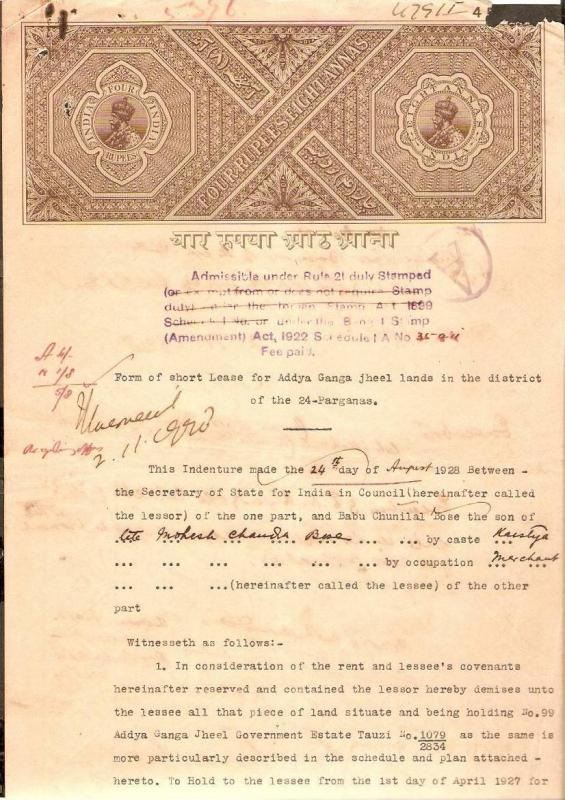 5396
47915 4
INDIA FOUR INDIA RUPEES
FOUR RUPEES EIGHT ANNAS
EIGHT ANNAS INDIA
चार रुपया आठ आना
Admissible under Rule 21 duly Stamped
(or exempt from or does not require Stamp
duty) under the Indian Stamp Act 1899
Schedule I No. or under the Bengal Stamp
(Amendment) Act, 1922 Schedule I A No
Fee paid.
A 4.
n 1/8
5/8
Form of short Lease for Addya Ganga jheel lands in the district
of the 24-Parganas.
This Indenture made the 24th day of August 1928 Between -
the Secretary of State for India in Council(hereinafter called
the lessor) of the one part, and Babu Chunilal Bose the son of
late Mohesh Chandra Bose ... ... by caste Kaistya
... ... ... ... ... ... by occupation Merchant
... ... ...(hereinafter called the lessee) of the other
part
Witnesseth as follows:-
1. In consideration of the rent and lessee's covenants
hereinafter reserved and contained the lessor hereby demises unto
the lessee all that piece of land situate and being holding No.99
Addya Ganga Jheel Government Estate Tauzi No.1079/2834 as the same is
more particularly described in the schedule and plan attached -
hereto. To Hold to the lessee from the 1st day of April 1927 for